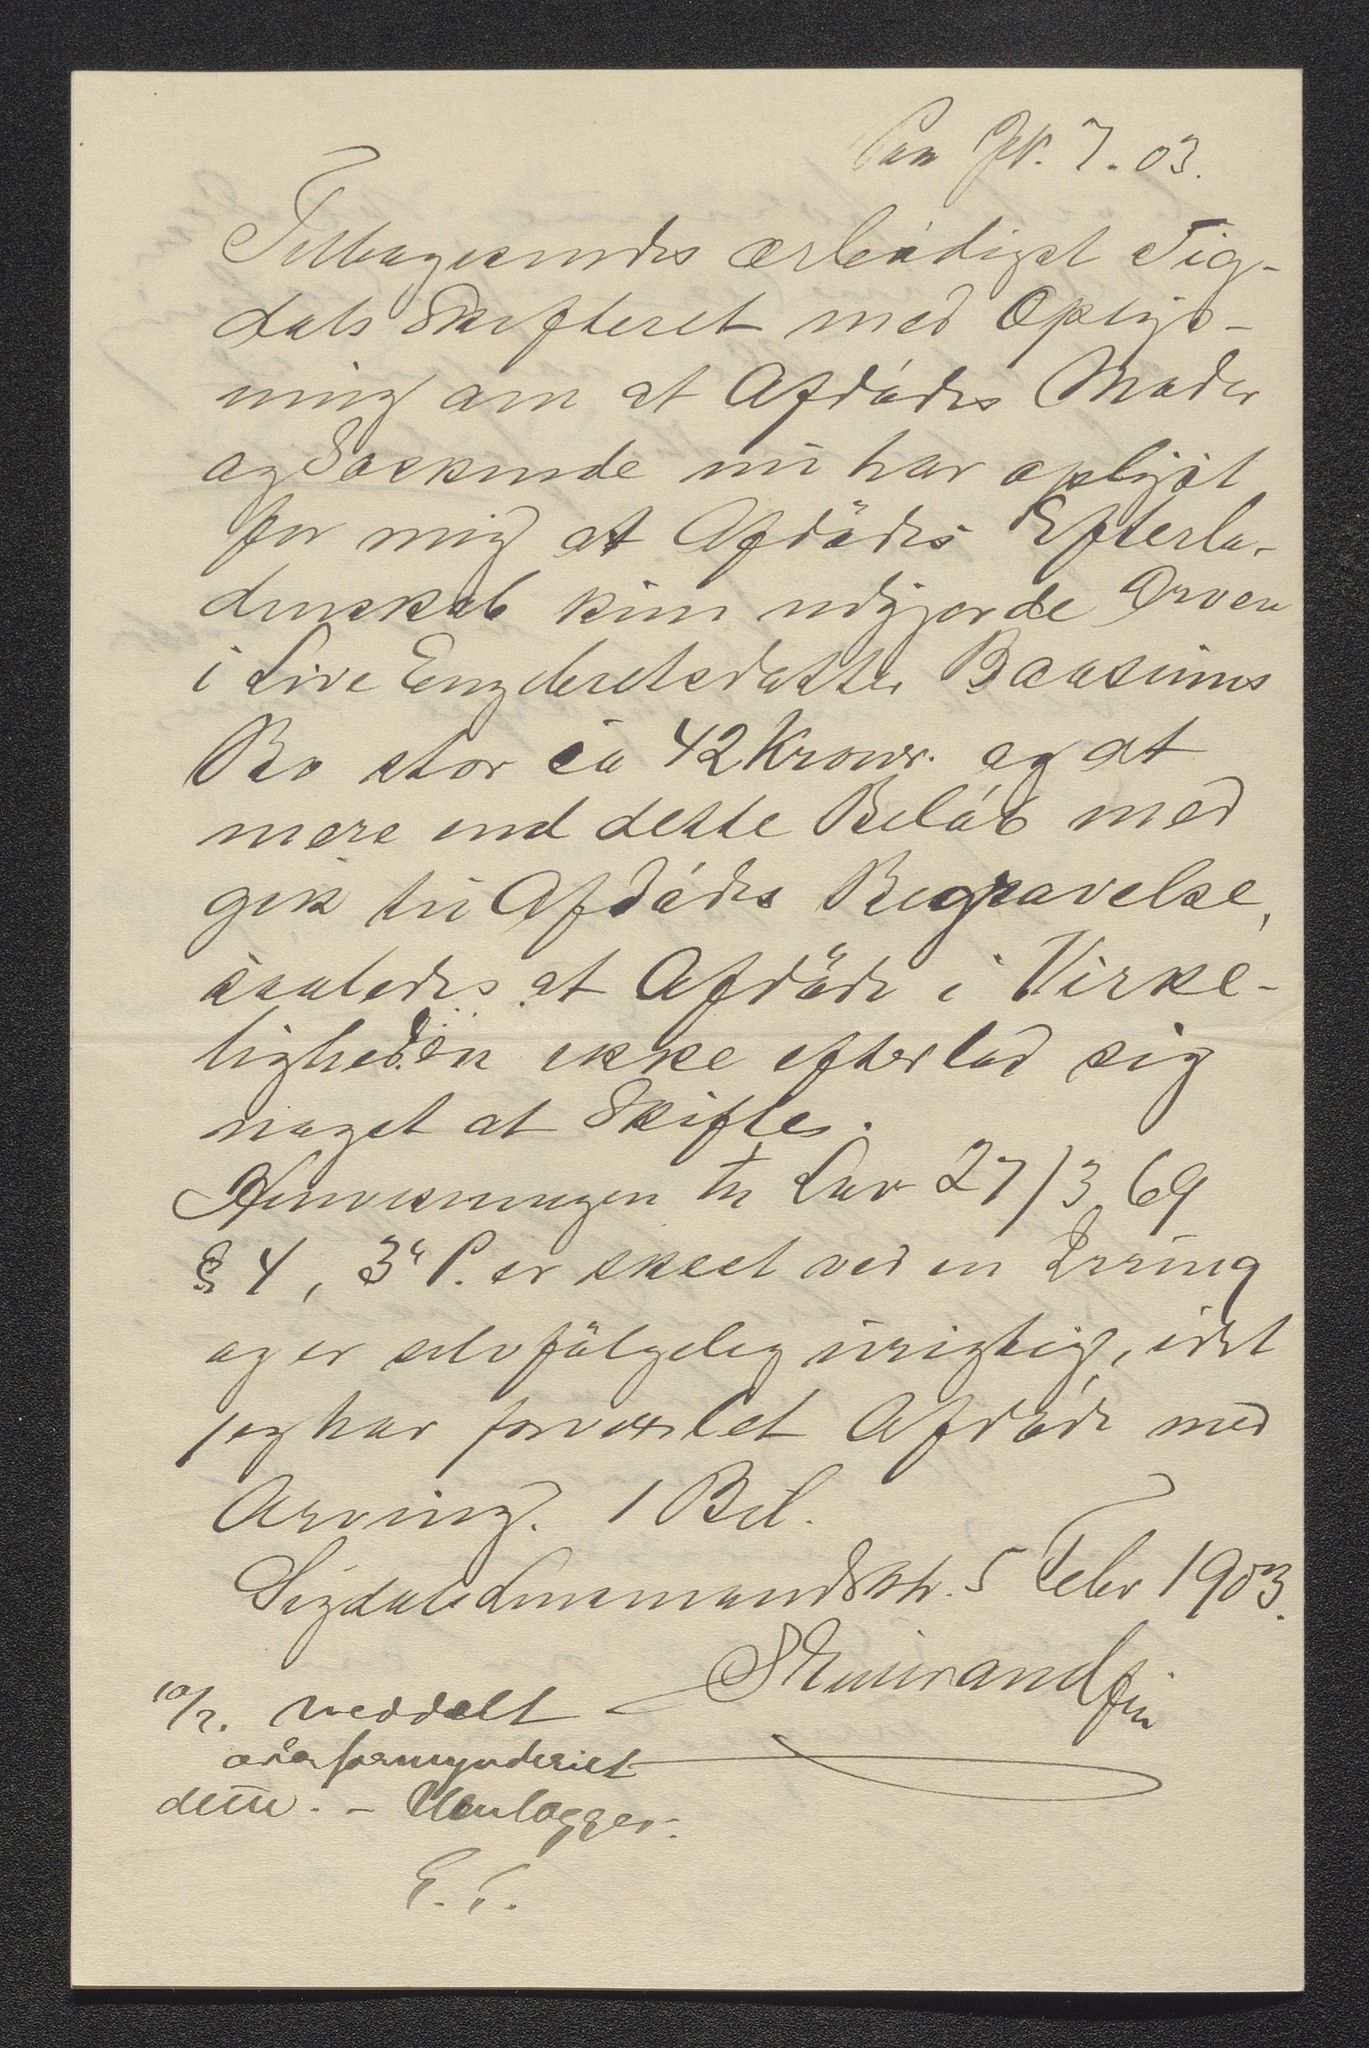 Paa Jr. 7. 03.
Tilbagesendes ærbödigst Sig-
dals Skifteret med Oplys-
ning om at Afdödes Moder
og Söskende nu har oplyst
for mig at Afdödes Efterla-
denskab kun udgjorde Arven
i Live Engebretsdatter Baasums
Bo stor ca 42 Kroner. og at
mere end dette Belöb med
gik til Afdödes Begravelse,
saaledes at Afdöde i Virke-
ligheden ikke efterlod sig
noget at Skifte.
Henvisningen til Lov 27/3 69
§ 4, 3' P. er skeet ved en Irring
og er selvfölgelig urigtig, idet
jeg har forvexlet Afdöde med
Arving. 1 Bil.
Sigdals Lensmandsktr. 5 Febr 1903.
10/2. meddelt
overformynderiet
dette. - Henlægges.
E. T.